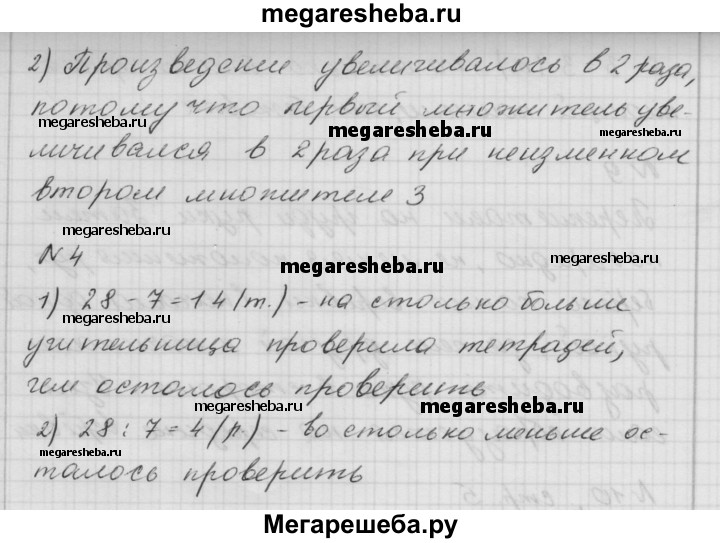 megaresheba.ru
2) Произведение увеличивалось в 2 раза,
потому что первый множитель уве-
megaresheba.ru megaresheba.ru megaresheba.ru
личивался в 2 раза при неизменном
втором множителе 3
megaresheba.ru megaresheba.ru
N 4
megaresheba.ru
1) 28 - 7 = 14 (т.) - на столько больше
megaresheba.ru megaresheba.ru
учительница проверила тетрадей,
чем осталось проверить
megaresheba.ru megaresheba.ru
2) 28 : 7 = 4 (р.) - во столько меньше ос-
megaresheba.ru megaresheba.ru
талось проверить
Мегарешеба.ру